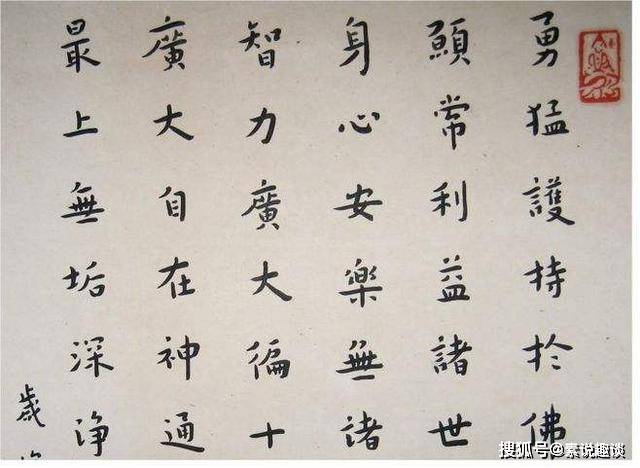 勇猛護持於佛
願常利益諸世
身心安樂無諸
智力廣大徧十
廣大自在神通
最上無垢深淨
歲
搜狐号@素说趣谈